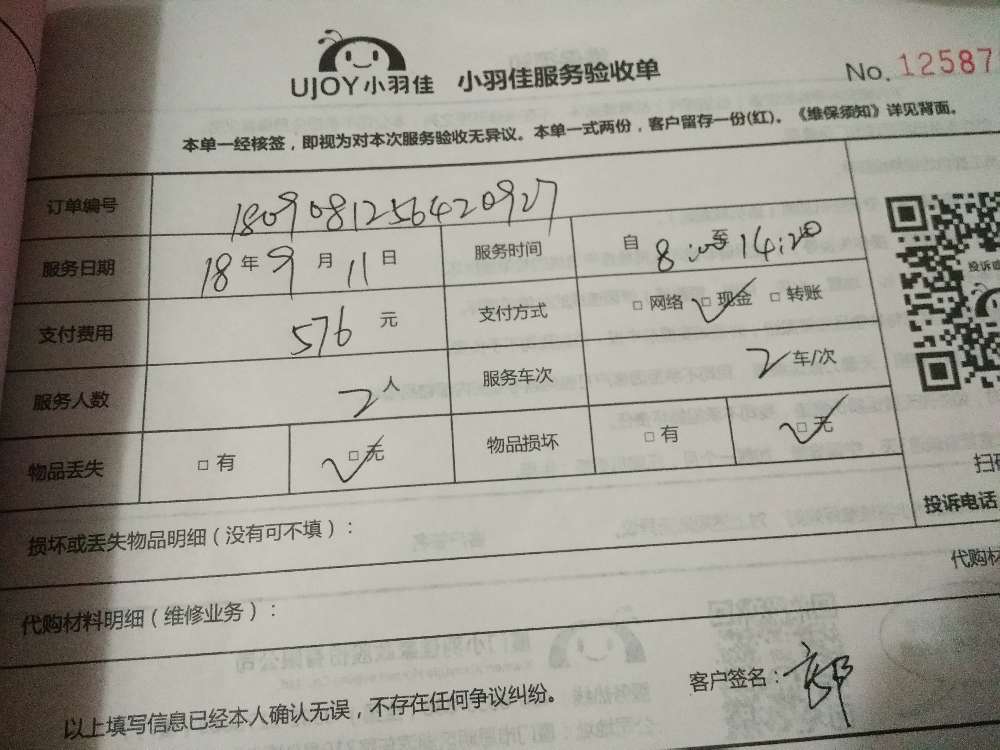 UJOY小羽佳 小羽佳服务验收单 No. 12587
本单一经核签，即视为对本次服务验收无异议。本单一式两份，客户留存一份(红)。《维保须知》详见背面。
订单编号 1809081256420927
服务日期 18年9月11日 服务时间 自8:00至14:20
支付费用 576元 支付方式 □网络 □现金 □转账
服务人数 2人 服务车次 2车/次
物品丢失 □有 □无 物品损坏 □有 □无
投诉
扫
投诉电话
损坏或丢失物品明细（没有可不填）：
代购材
代购材料明细（维修业务）：
以上填写信息已经本人确认无误，不存在任何争议纠纷。 客户签名：